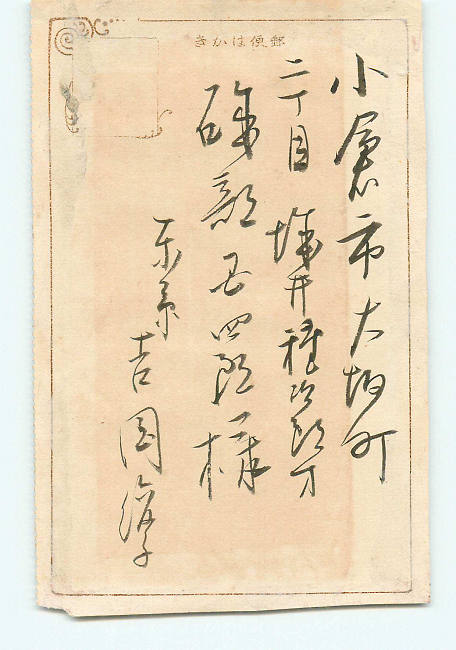 郵便はがき
小倉市大坂町
二丁目 井種次郎方
磯部 四郎様
東京
吉岡